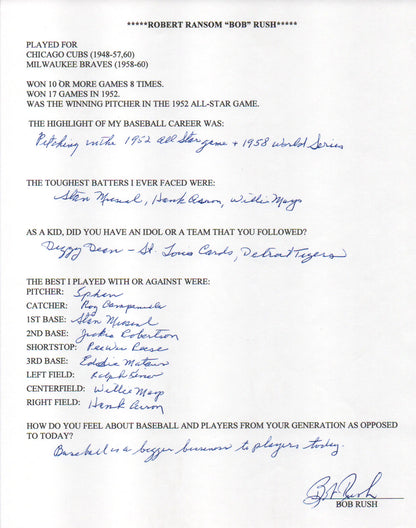 *****ROBERT RANSOM “BOB” RUSH*****
PLAYED FOR
CHICAGO CUBS (1948-57,60)
MILWAUKEE BRAVES (1958-60)
WON 10 OR MORE GAMES 8 TIMES.
WON 17 GAMES IN 1952.
WAS THE WINNING PITCHER IN THE 1952 ALL-STAR GAME.
THE HIGHLIGHT OF MY BASEBALL CAREER WAS:
Pitching in the 1952 all Star game + 1958 World Series
THE TOUGHEST BATTERS I EVER FACED WERE:
Stan Musial, Hank Aaron, Willie Mays
AS A KID, DID YOU HAVE AN IDOL OR A TEAM THAT YOU FOLLOWED?
Dizzy Dean - St. Louis Cards, Detroit Tigers
THE BEST I PLAYED WITH OR AGAINST WERE:
PITCHER: Sphan
CATCHER: Roy Campanela
1ST BASE: Stan Musial
2ND BASE: Jackie Robertson
SHORTSTOP: PeeWee Reese
3RD BASE: Eddie Matews
LEFT FIELD: Ralph Kiner
CENTERFIELD: Willie Mays
RIGHT FIELD: Hank Aaron
HOW DO YOU FEEL ABOUT BASEBALL AND PLAYERS FROM YOUR GENERATION AS OPPOSED
TO TODAY?
Baseball is a bigger business to players today.
Bob Rush
BOB RUSH